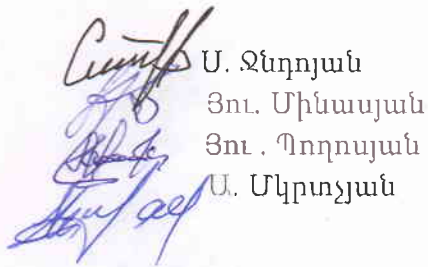 Ս. Ջնդոյան
Յու. Մինասյան
Յու . Պողոսյան
Ա. Մկրտչյան